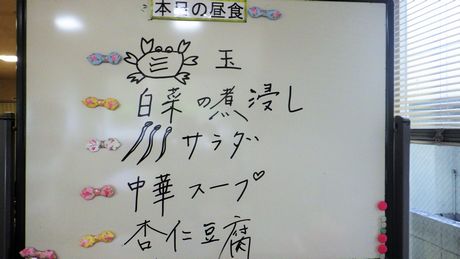 本日の昼食
玉
白菜の煮浸し
サラダ
中華スープ♡
杏仁豆腐